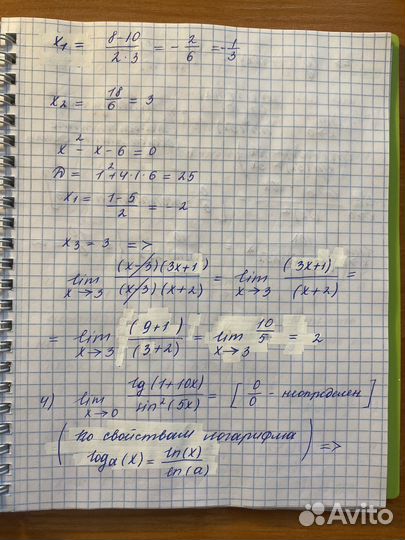 x₁ = (8-10)/(2·3) = -2/6 = -1/3
x₂ = 18/6 = 3
x² - x - 6 = 0
D = 1² + 4·1·6 = 25
x₁ = (1-5)/2 = -2
x₃ = 3 =>
lim x→3 (x-3)(3x+1)/(x-3)(x+2) = lim x→3 (3x+1)/(x+2) =
= lim x→3 (9+1)/(3+2) = lim x→3 10/5 = 2
4) lim x→0 lg(1+10x)/sin²(5x) = [0/0 - неопределен]
(по свойствам логарифма
logₐ(x) = ln(x)/ln(a)) =>
Avito